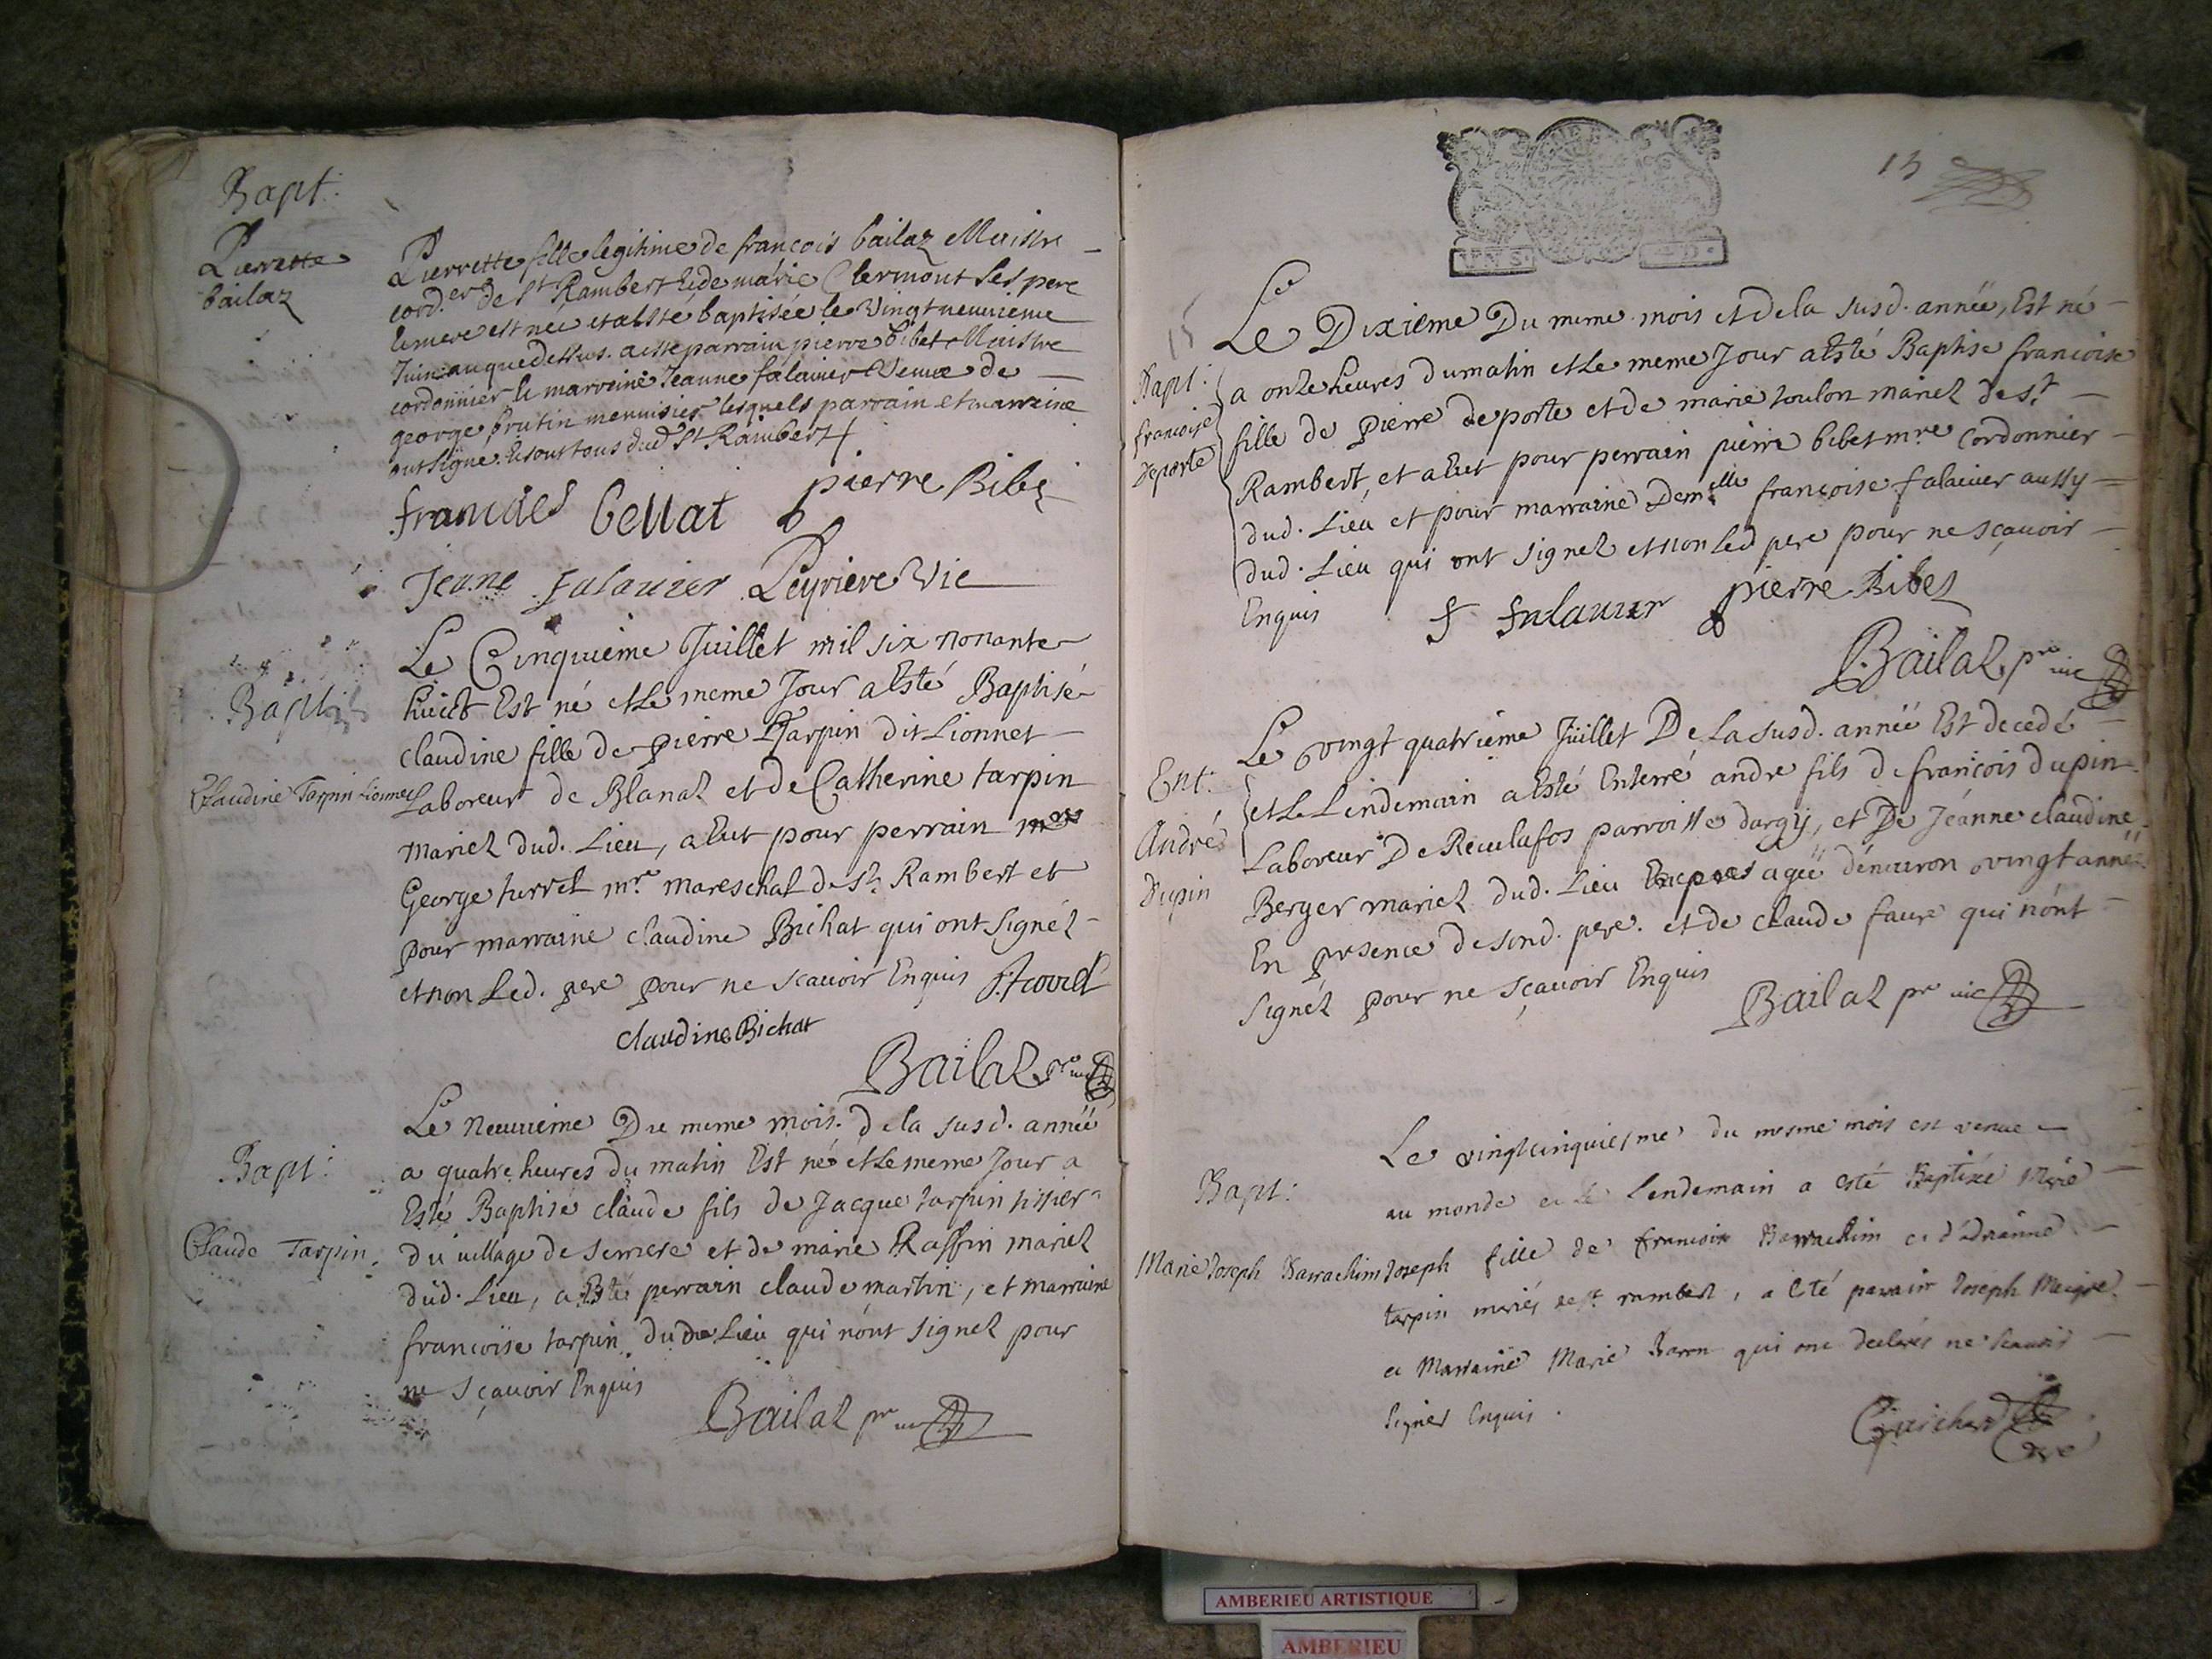 Bapt:
Pierrette
bailaz
Pierrette fille legitime de françois bailaz Maistre
cord.er de St Rambert & de marie Clermont ses pere
& mere est née et a esté baptisée le Vingt neuuieme
Juin an que dessus. a esté parrain pierre bibet Maistre
cordonnier & marraine Jeanne falauier Veuue de
george frutin menuisier lesquels parrain et marraine
ont signe. & sont tous dud St Rambert
francoies bellat pierre Bibet
Jeane falauier Peyriere Vic
Bapt:
Claudine Tarpin Lionnet
Le Cinquieme Juillet mil six nonante
huict Est né et Le meme Jour a Esté Baptisé
claudine fille de pierre Tarpin dit Lionnet
Laboreur de Blanaz et de Catherine tarpin
mariez dud. Lieu, a Eut pour perrain
George turrel mre mareschal de St Rambert et
pour marraine claudine Bichat qui ont signéz
et non Led. pere pour ne scauoir Enquis
claudine Bichat
Bailaz pre uic
Bapt:
Claude Tarpin
Le neuuieme Du meme mois. de la susd. année
a quatre heures du matin Est né et Le meme Jour a
Esté Baptisé claude fils de Jacque tarpin tissier
du uillage de serriere et de marie Raffin mariez
dud. Lieu, a Esté perrain claude martin, et marraine
francoise tarpin du de Lieu qui nont signez pour
ne sçauoir Enquis
Bailaz pre uic
13
15
Bapt:
francoise
Deporte
Le Dixieme Du meme mois et de la susd. année, Est né
a onze heures du matin et Le meme Jour a Esté Baptise francoise
fille de pierre deporte et de marie toulon mariez de St
Rambert, et a Eut pour perrain pierre bibet mre Cordonnier
dud. Lieu et pour marraine Demlle françoise falauier aussy
dud. Lieu qui ont signez et non Led pere pour ne sçauoir
Enquis
f falauier pierre Bibet
Bailaz pre uic
Ent:
André
Dupin
Le vingt quatrieme Juillet De La susd. année Est decedé
et Le Lendemain a Esté Enterré andre fils de francois dupin
Laboreur De Reculafos parroisse dargy, et De Jeanne claudine
Berger mariez dud. Lieu agé denuiron vingt années
En presence de sond. pere. et de claude faure qui nont
signéz pour ne sçauoir Enquis
Bailaz pre uic
Bapt:
Marie Joseph Barrachim
Le vingtcinquiesme du mesme mois est venue
au monde et le Lendemain a esté Baptizée Marie
Joseph fille de francois Barrachim et d'Adrianne
tarpin mariés de St rambert, a Eté parain Joseph Maigre
et Marraine Marie Baron qui ont declarés ne scauoir
signer Enquis.
Guichard
Curé
AMBERIEU ARTISTIQUE
AMBERIEU